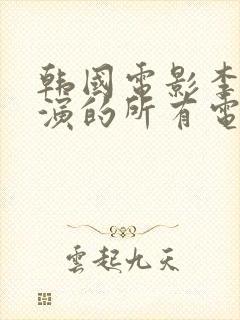 韩國電影李
演的所有電
雲起九天